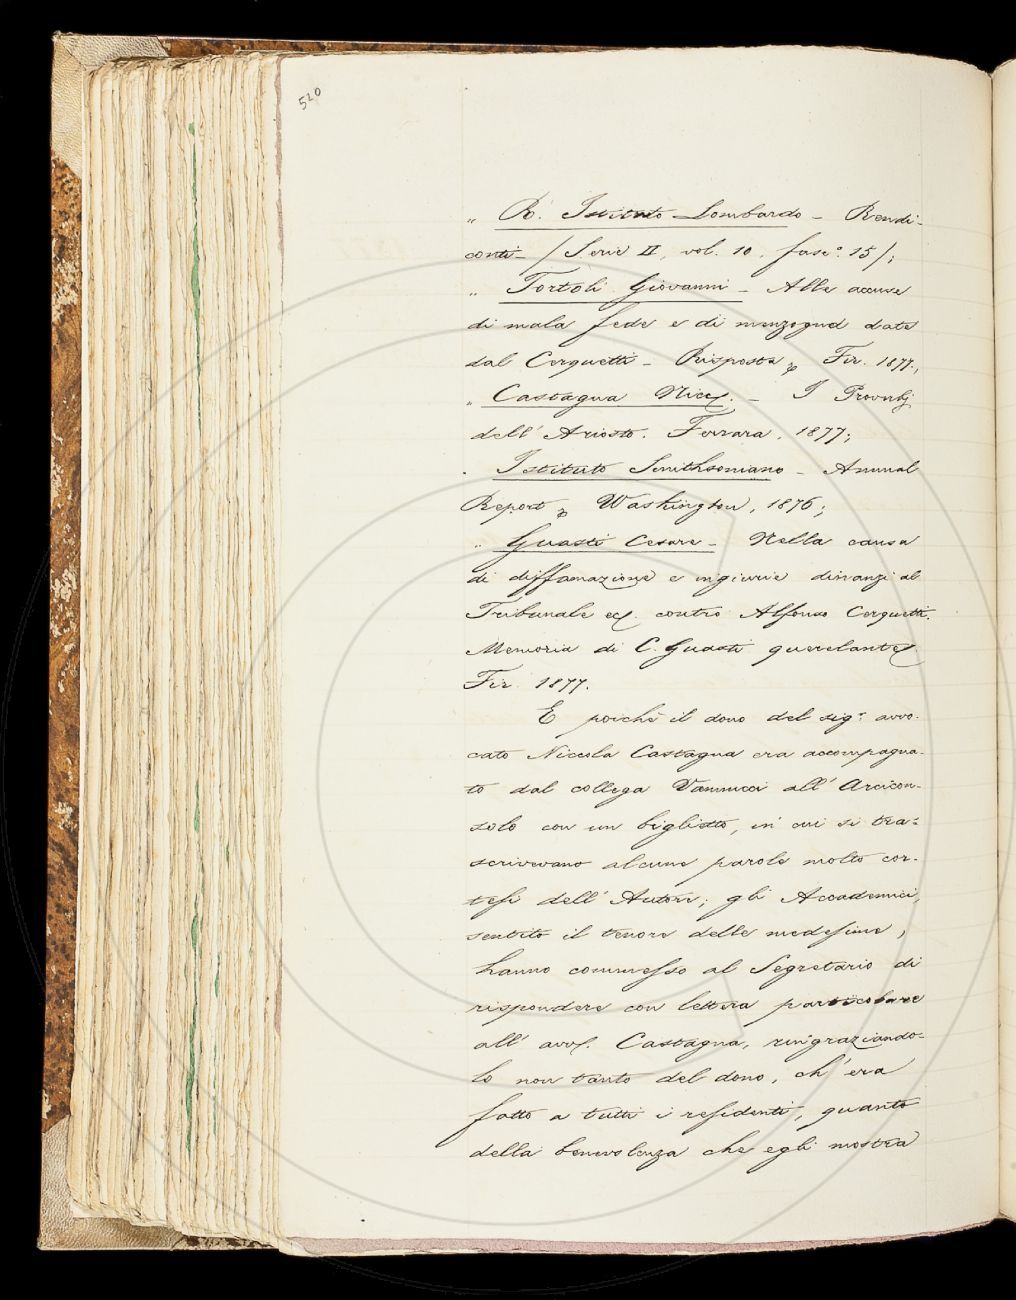 520
" R. Istituto Lombardo - Rendi-
conti - / Serie II, vol. 10, fasc.° 15 /;
" Tortoli Giovanni - Alle accuse
di mala fede e di menzogna date
dal Cerquetti - Risposta & Fir. 1877.,
" Castagna Nicc. - I Proverbj
dell' Ariosto. Ferrara, 1877;
" Istituto Smithsoniano - Annual
Report & Washington, 1876;
" Guasti Cesare - Nella causa
di diffamazione e ingiurie dinanzi al
Tribunale ec. contro Alfonso Cerquetti.
Memoria di C. Guasti querelante
Fir. 1877.
E poichè il dono del sig.r avvo-
cato Niccola Castagna era accompagna-
to dal collega Vannucci all' Arcicon-
solo con un biglietto, in cui si tra=
scrivevano alcune parole molto cor-
tesi dell' Autore; gli Accademici,
sentito il tenore delle medesime,
hanno commesso al Segretario di
rispondere con lettera particolare
all' avv. Castagna, ringraziando-
lo non tanto del dono, ch' era
fatto a tutti i residenti, quanto
della benevolenza che egli mostra